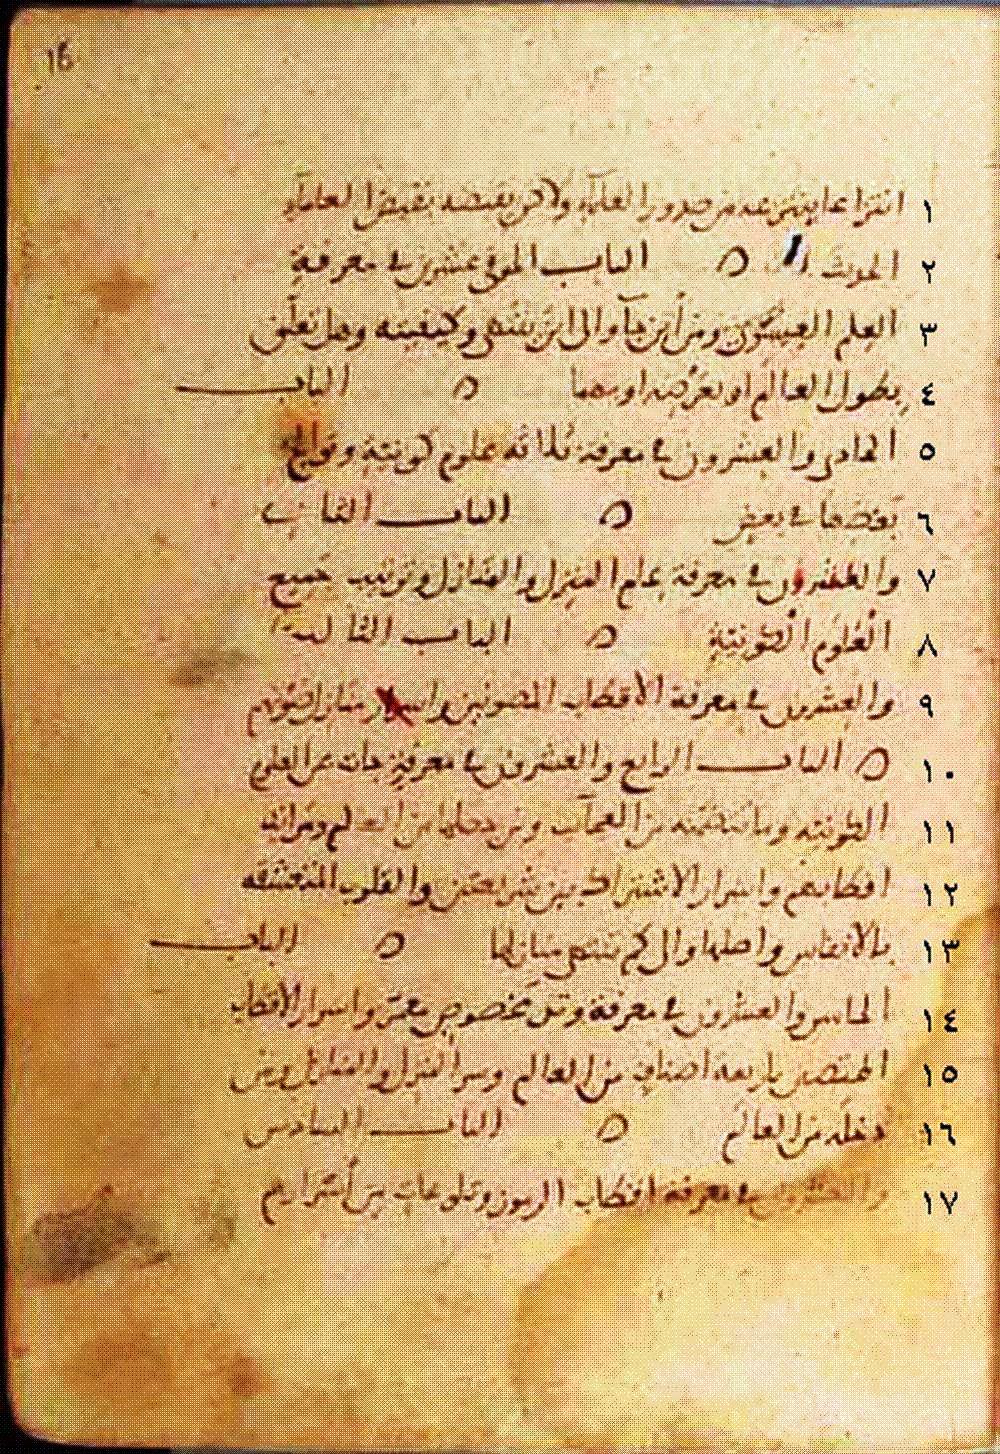 16
١ انتزاعا ينتزعه من صدور العلمآء ولاكن بقبضه بقبض العلمآء
٢ الحديث ه الباب الموفي عشرين في معرفة
٣ العلم العيسوي ومن أين جآء والى اين ينتهي وكيفيته وهل تعلق
٤ بطول العالم او بعرضه او بهما ه الباب
٥ الحادي والعشرون في معرفة ثلاثه علوم كونية وتوالج
٦ بعضها في بعض ه الباب الثاني
٧ والعشرون في معرفة علم المنزل والمنازل وترتيب جميع
٨ العلوم الكونية ه الباب الثالث
٩ والعشرون في معرفة الاقطاب المصونين واسرار منازل صونهم
١٠ ه الباب الرابع والعشرون في معرفة جات عن العلوم
١١ الكونيه وما تتضمنه من العجآئب ومن حصلها من العالم ومراتب
١٢ اقطابهم واسرار الاشتراك بين شريعتين والقلوب المتعشقه
١٣ بالانفاس واصلها والى كم تنتهي منازلها ه الباب
١٤ الخامس والعشرون في معرفة وتد مخصوص معمر واسرار الاقطاب
١٥ المختصين باربعة اصناف من العالم وسر المنزل والمنازل ومن
١٦ دخله من العالم ه الباب السادس
١٧ والعشرون في معرفة اقطاب الرموز وتلوىحات من أسرارهم